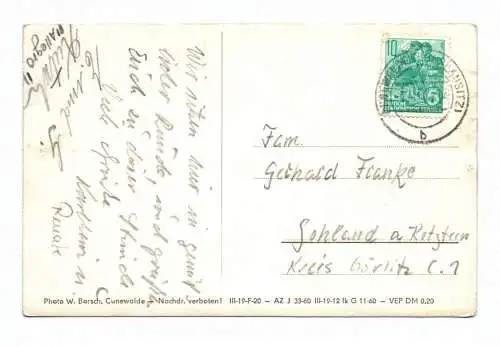 Wir sitzen hier in gemütl.
licher Runde und grüßen
Euch zu dieser Stunde
Viele Grüße
Karlheinz u.
Renate
10
DEUTSCHE
DEMOKRATISCHE REPUBLIK
5
LAUSITZ)
b
Fam.
Gerhald Franke
Sohland a Rotstein
Kreis Görlitz C. 1
Photo W. Bersch, Cunewalde – Nachdr. verboten! III-19-F-20 – AZ J 33-60 III-19-12 Ik G 11-60 – VEP DM 0,20